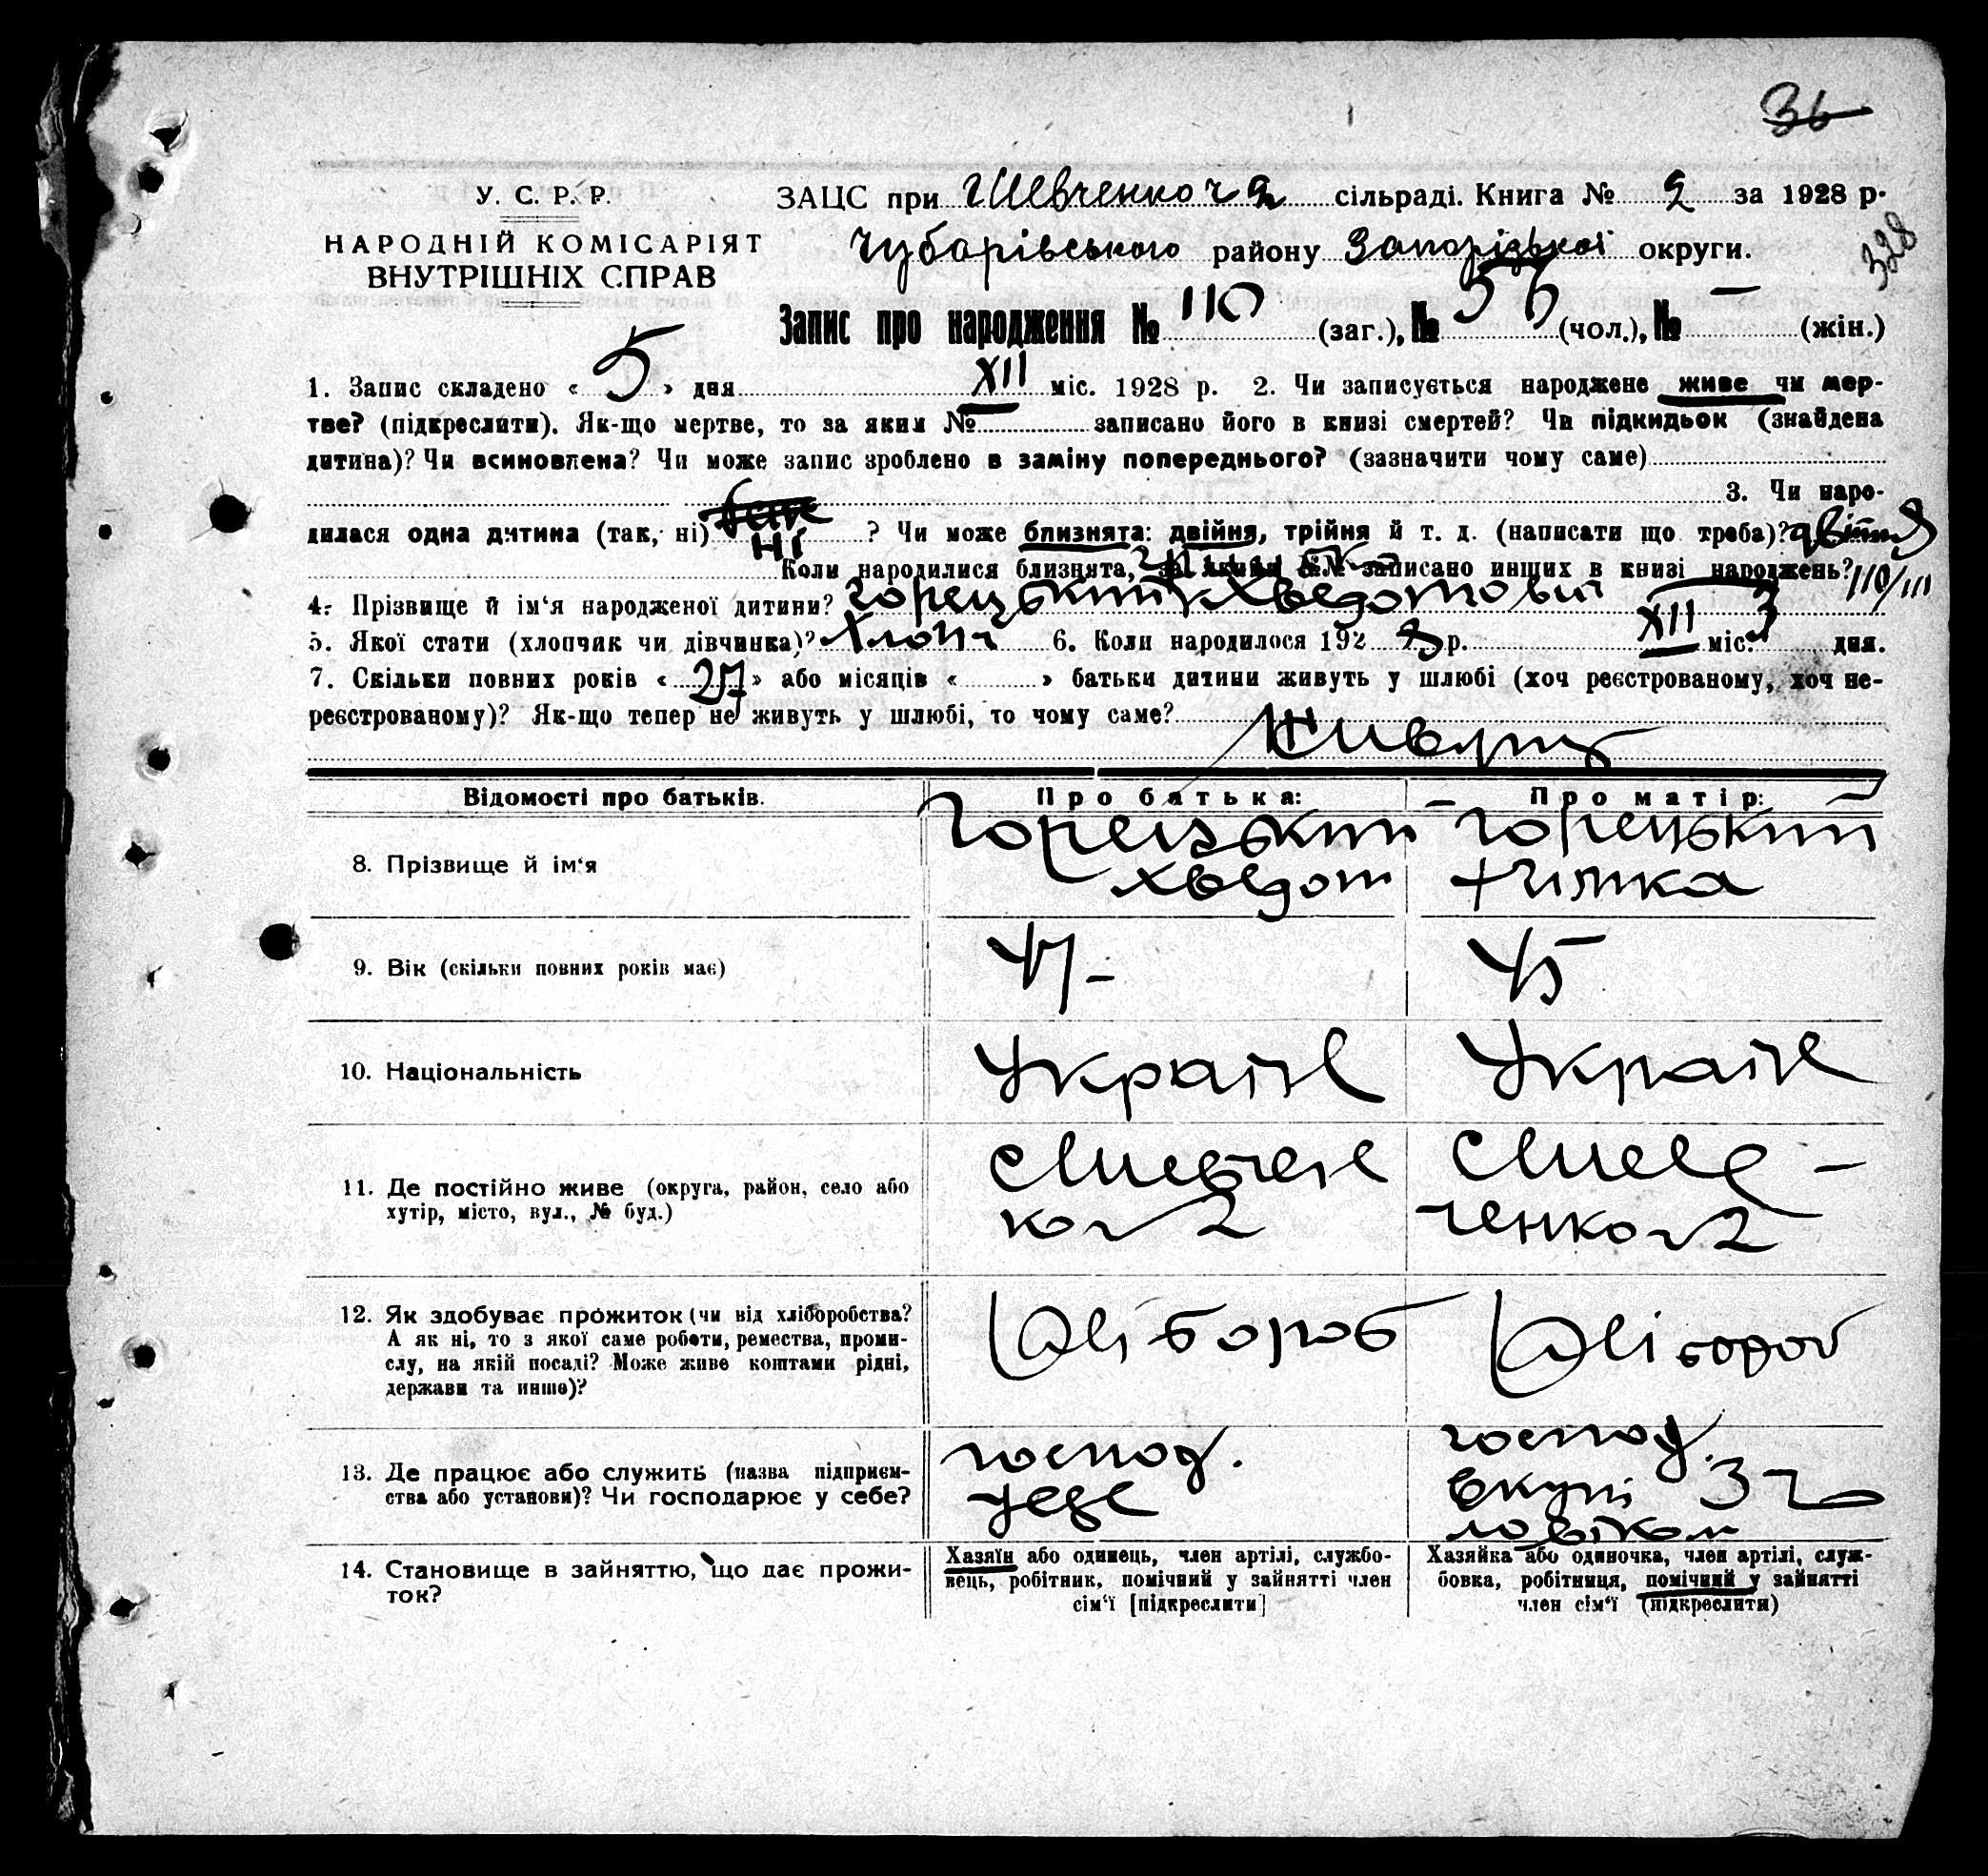 36
У. С. Р. Р.
НАРОДНІЙ КОМІСАРІЯТ
ВНУТРІШНІХ СПРАВ
ЗАЦС при Шевченко 2 сільраді. Книга № 2 за 1928 р.
Чубарівського району Запорізької округи.
328
Запис про народження № 110 (заг.), № 56 (чол.), № — (жін.)
1. Запис складено « 5 » дня XII міс. 1928 р. 2. Чи записується народжене живе чи мер-
тве? (підкреслити). Як-що мертве, то за яким № записано його в книзі смертей? Чи підкидьок (знайдена
дитина)? Чи всиновлена? Чи може запис зроблено в заміну попереднього? (зазначити чому саме)
3. Чи наро-
дилася одна дитина (так, ні) ні ? Чи може близнята: двійня, трійня й т. д. (написати що треба)? двійня
Коли народилися близнята, за якими №№ записано инших в книзі народжень? 110/111
4. Прізвище й ім‘я народженої дитини? Горецький
5. Якої стати (хлопчик чи дівчинка)? хлопч 6. Коли народилося 192 8 р. XII міс. 3 дня.
7. Скільки повних років « 27 » або місяців « » батьки дитини живуть у шлюбі (хоч реєстрованому, хоч не-
реєстрованому)? Як-що тепер не живуть у шлюбі, то чому саме?
Живуть
Відомості про батьків. Про батька: Про матір:
8. Прізвище й ім‘я
Горецький Горецький
Хведот
9. Вік (скільки повних років має) 47 – 45
10. Національність Україн Україн
11. Де постійно живе (округа, район, село або
хутір, місто, вул., № буд.)
с Шевчен с Шев –
ко 2 ченко 2
12. Як здобуває прожиток (чи від хліборобства?
А як ні, то з якої саме роботи, ремества, проми-
слу, на якій посаді? Може живе коштами рідні,
держави та инше)?
Хлібороб Хлібороб
13. Де працює або служить (назва підприєм-
ства або установи)? Чи господарює у себе?
господ. господ.
у себе вкупі з чо
ловіком
14. Становище в зайняттю, що дає прожи-
ток?
Хазяїн або одинець, член артілі, службо-
вець, робітник, помічний у зайнятті член
сім‘ї [підкреслити]
Хазяйка або одиночка, член артілі, служ-
бовка, робітниця, помічний у зайнятті
член сім‘ї (підкреслити)